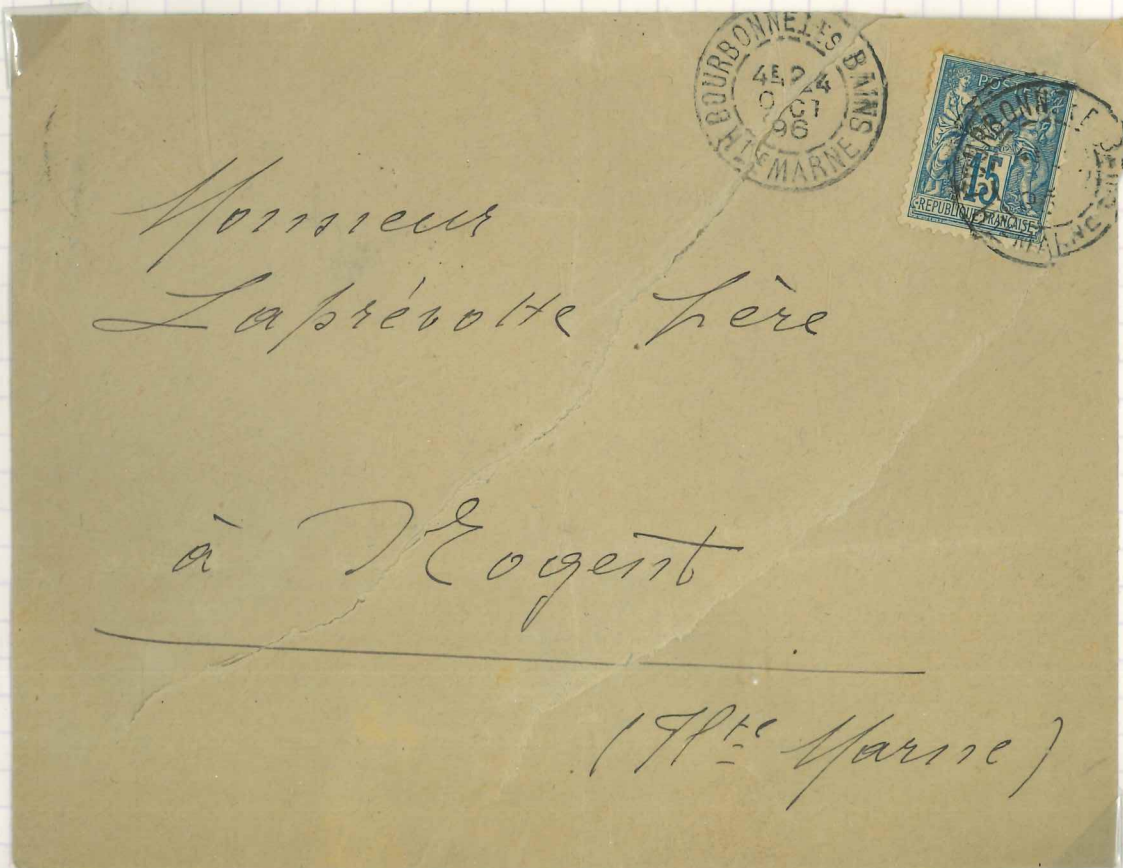 BOURBONNE LES BAINS
4E 24
OCT
96
HTE MARNE
POSTES
15
REPUBLIQUE FRANÇAISE
Monsieur
Laprévotte Père
à Nogent
(Hte Marne)